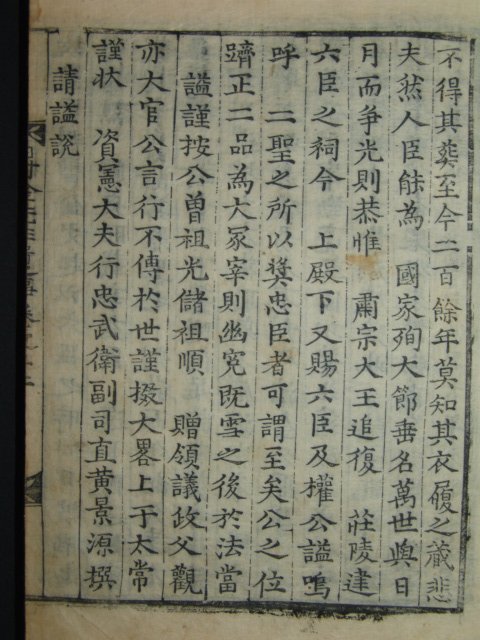 不得其葬至今二百餘年莫知其衣履之藏悲
夫然人臣能為 國家殉大節垂名萬世與日
月而爭光則恭惟 肅宗大王追復 莊陵建
六臣之祠今 上殿下又賜六臣及權公諡嗚
呼 二聖之所以奬忠臣者可謂至矣公之位
躋正二品為大冢宰則幽冤既雪之後於法當
諡謹按公曽祖光儲祖順 贈領議政父觀
亦大官公言行不傳於世謹掇大畧上于太常
謹状 資憲大夫行忠武衛副司直黄景源撰
請諡説